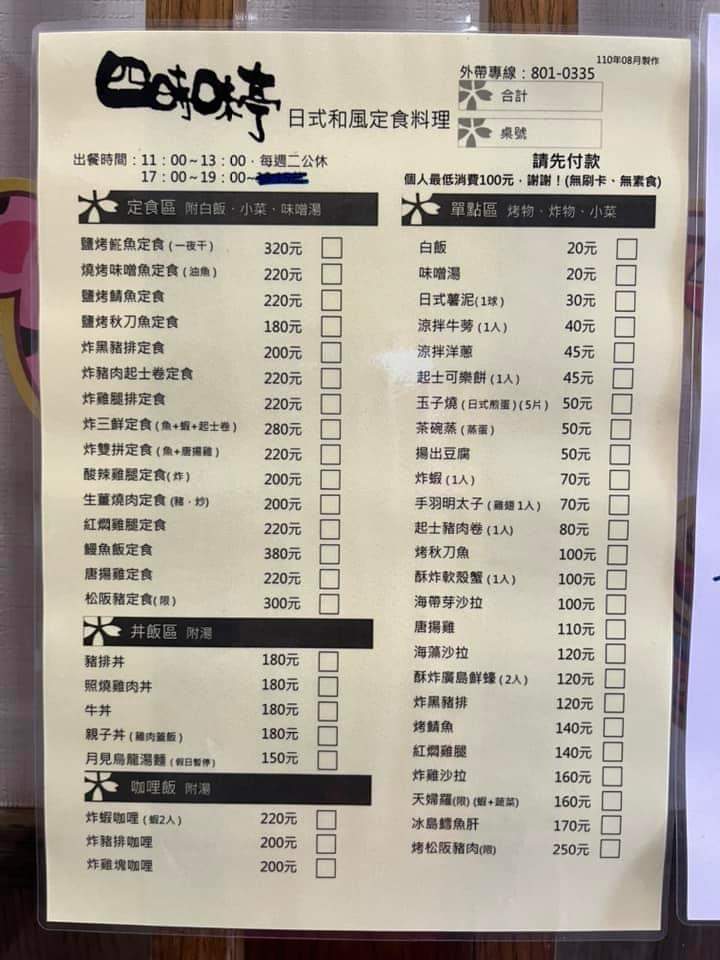 四時味亭
日式和風定食料理
110年08月製作
外帶專線：801-0335
合計
桌號
出餐時間：11：00~13：00，每週二公休
17：00~19：00~
請先付款
個人最低消費100元，謝謝！(無刷卡、無素食)
定食區 附白飯．小菜．味噌湯
鹽烤鯱魚定食 (一夜干) 320元
燒烤味噌魚定食 (油魚) 220元
鹽烤鯖魚定食 220元
鹽烤秋刀魚定食 180元
炸黑豬排定食 200元
炸豬肉起士卷定食 220元
炸雞腿排定食 220元
炸三鮮定食 (魚+蝦+起士卷) 280元
炸雙拼定食 (魚+唐揚雞) 220元
酸辣雞腿定食(炸) 200元
生薑燒肉定食 (豬．炒) 200元
紅燜雞腿定食 220元
鰻魚飯定食 380元
唐揚雞定食 220元
松阪豬定食(限) 300元
丼飯區 附湯
豬排丼 180元
照燒雞肉丼 180元
牛丼 180元
親子丼 (雞肉蓋飯) 180元
月見烏龍湯麵 (假日暫停) 150元
咖哩飯 附湯
炸蝦咖哩 (蝦2人) 220元
炸豬排咖哩 200元
炸雞塊咖哩 200元
單點區 烤物、炸物、小菜
白飯 20元
味噌湯 20元
日式薯泥(1球) 30元
涼拌牛蒡 (1人) 40元
涼拌洋蔥 45元
起士可樂餅 (1人) 45元
玉子燒 (日式煎蛋) (5片) 50元
茶碗蒸 (蒸蛋) 50元
揚出豆腐 50元
炸蝦 (1人) 70元
手羽明太子 (雞翅 1人) 70元
起士豬肉卷 (1人) 80元
烤秋刀魚 100元
酥炸軟殼蟹 (1人) 100元
海帶芽沙拉 100元
唐揚雞 110元
海藻沙拉 120元
酥炸廣島鮮蠔 (2人) 120元
炸黑豬排 120元
烤鯖魚 140元
紅燜雞腿 140元
炸雞沙拉 160元
天婦羅(限) (蝦+蔬菜) 160元
冰島鱈魚肝 170元
烤松阪豬肉(限) 250元